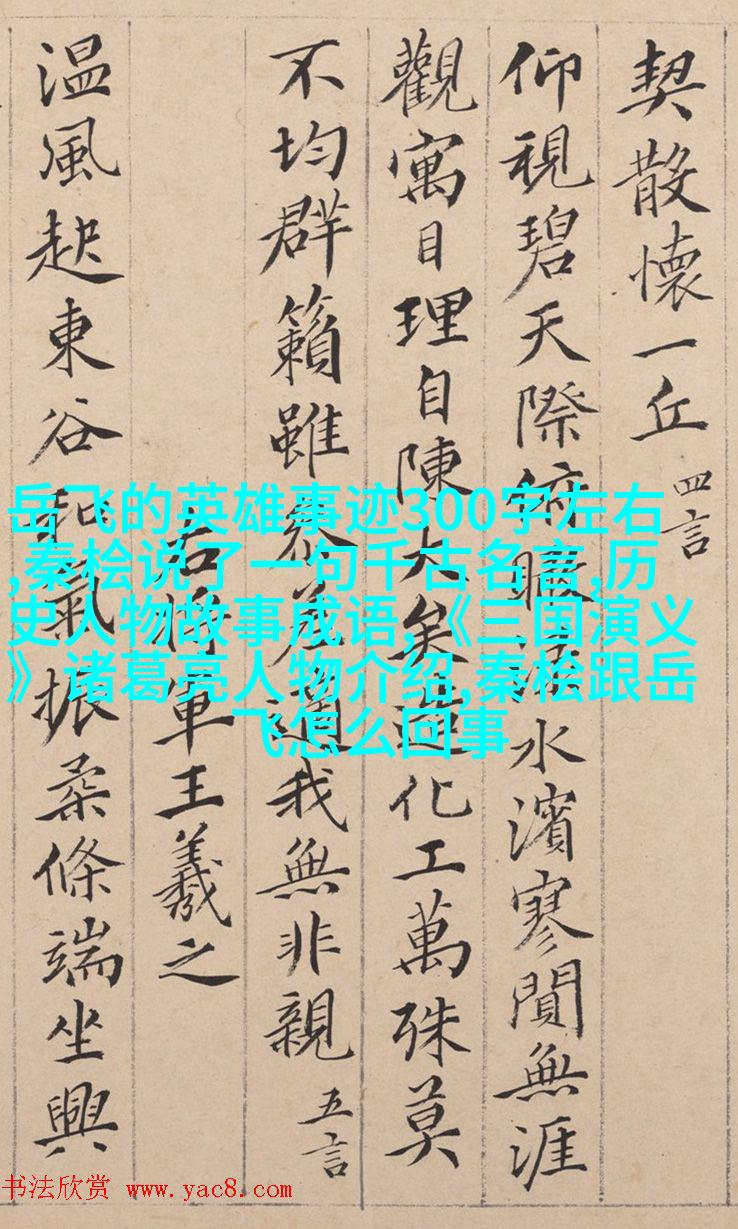 契散懷一丘 四言
仰視碧天際俯瞰淥水濱寥閴無涯
觀寓目理自陳大矣造化工萬殊莫
不均群籟雖參差適我無非親 五言
右將軍王羲之
温風起東谷和氣振柔條端坐興
岳飞的英雄事迹300字左右
,秦桧说了一句千古名言,历
史人物故事成语,《三国演义
》诸葛亮人物介绍,秦桧跟岳
飞怎么回事
书法欣赏 www.yac8.com